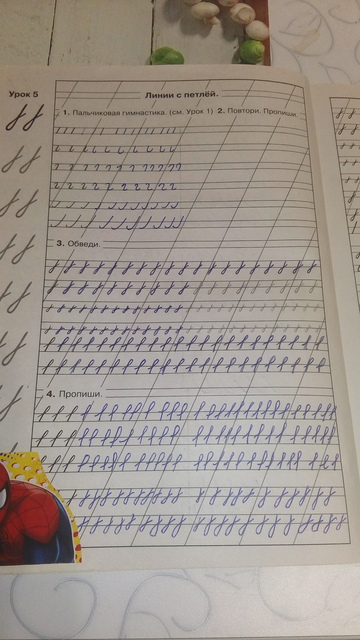 Урок 5
Линии с петлёй.
1. Пальчиковая гимнастика. (см. Урок 1) 2. Повтори. Пропиши.
3. Обведи.
4. Пропиши.